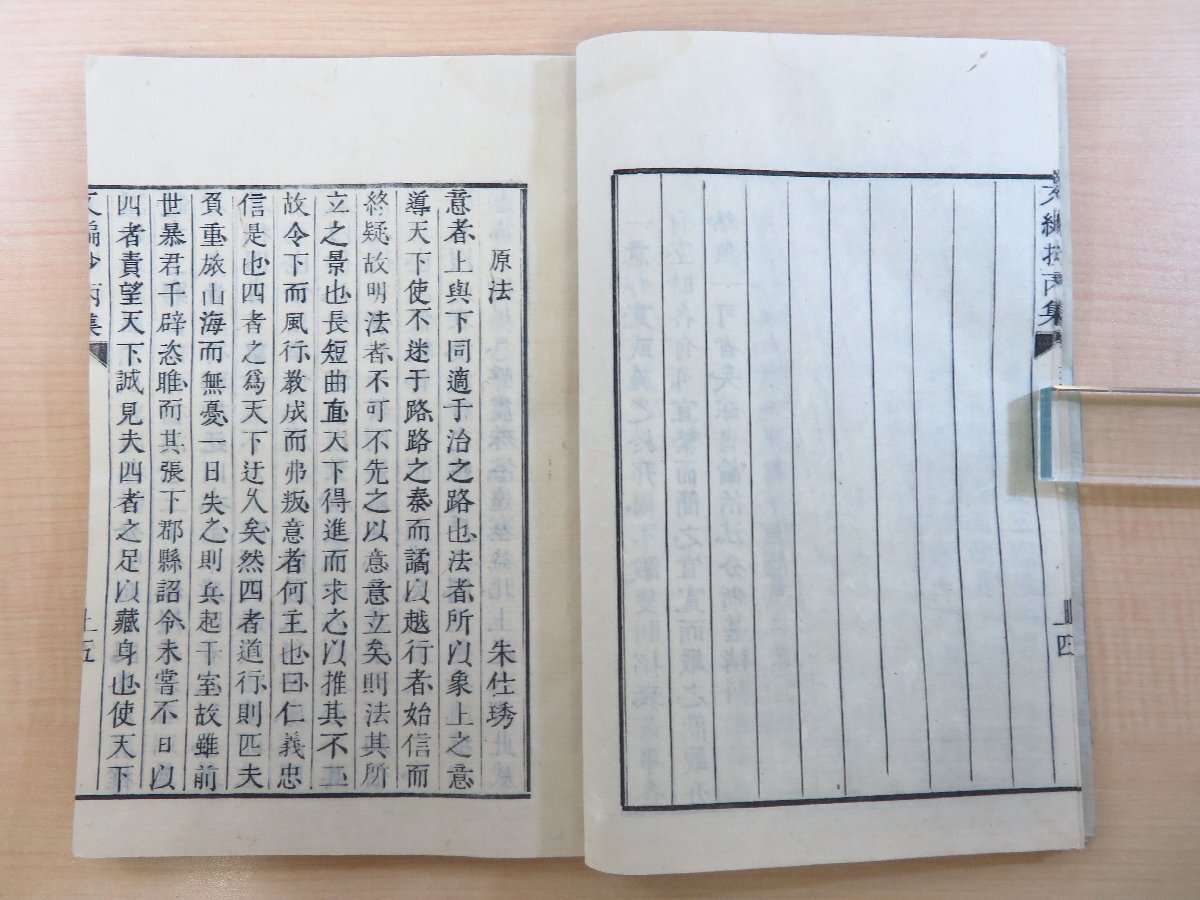 丙集
上四
原法 朱仕琇
意者上與下同適于治之路也法者所以象上之意
導天下使不迷于路路之泰而譎以越行者始信而
終疑故明法者不可不先之以意意立矣則法其所
立之景也長短曲直天下得進而求之以推其不正
故令下而風行教成而弗叛意者何主也曰仁義忠
信是也四者之爲天下迂久矣然四者道行則匹夫
負重旅山海而無憂一日失之則兵起于室故雖前
世暴君千辟恣睢而其張下郡縣詔令未嘗不日以
四者責望天下誠見夫四者之足以藏身也使天下
文編抄丙集
上五